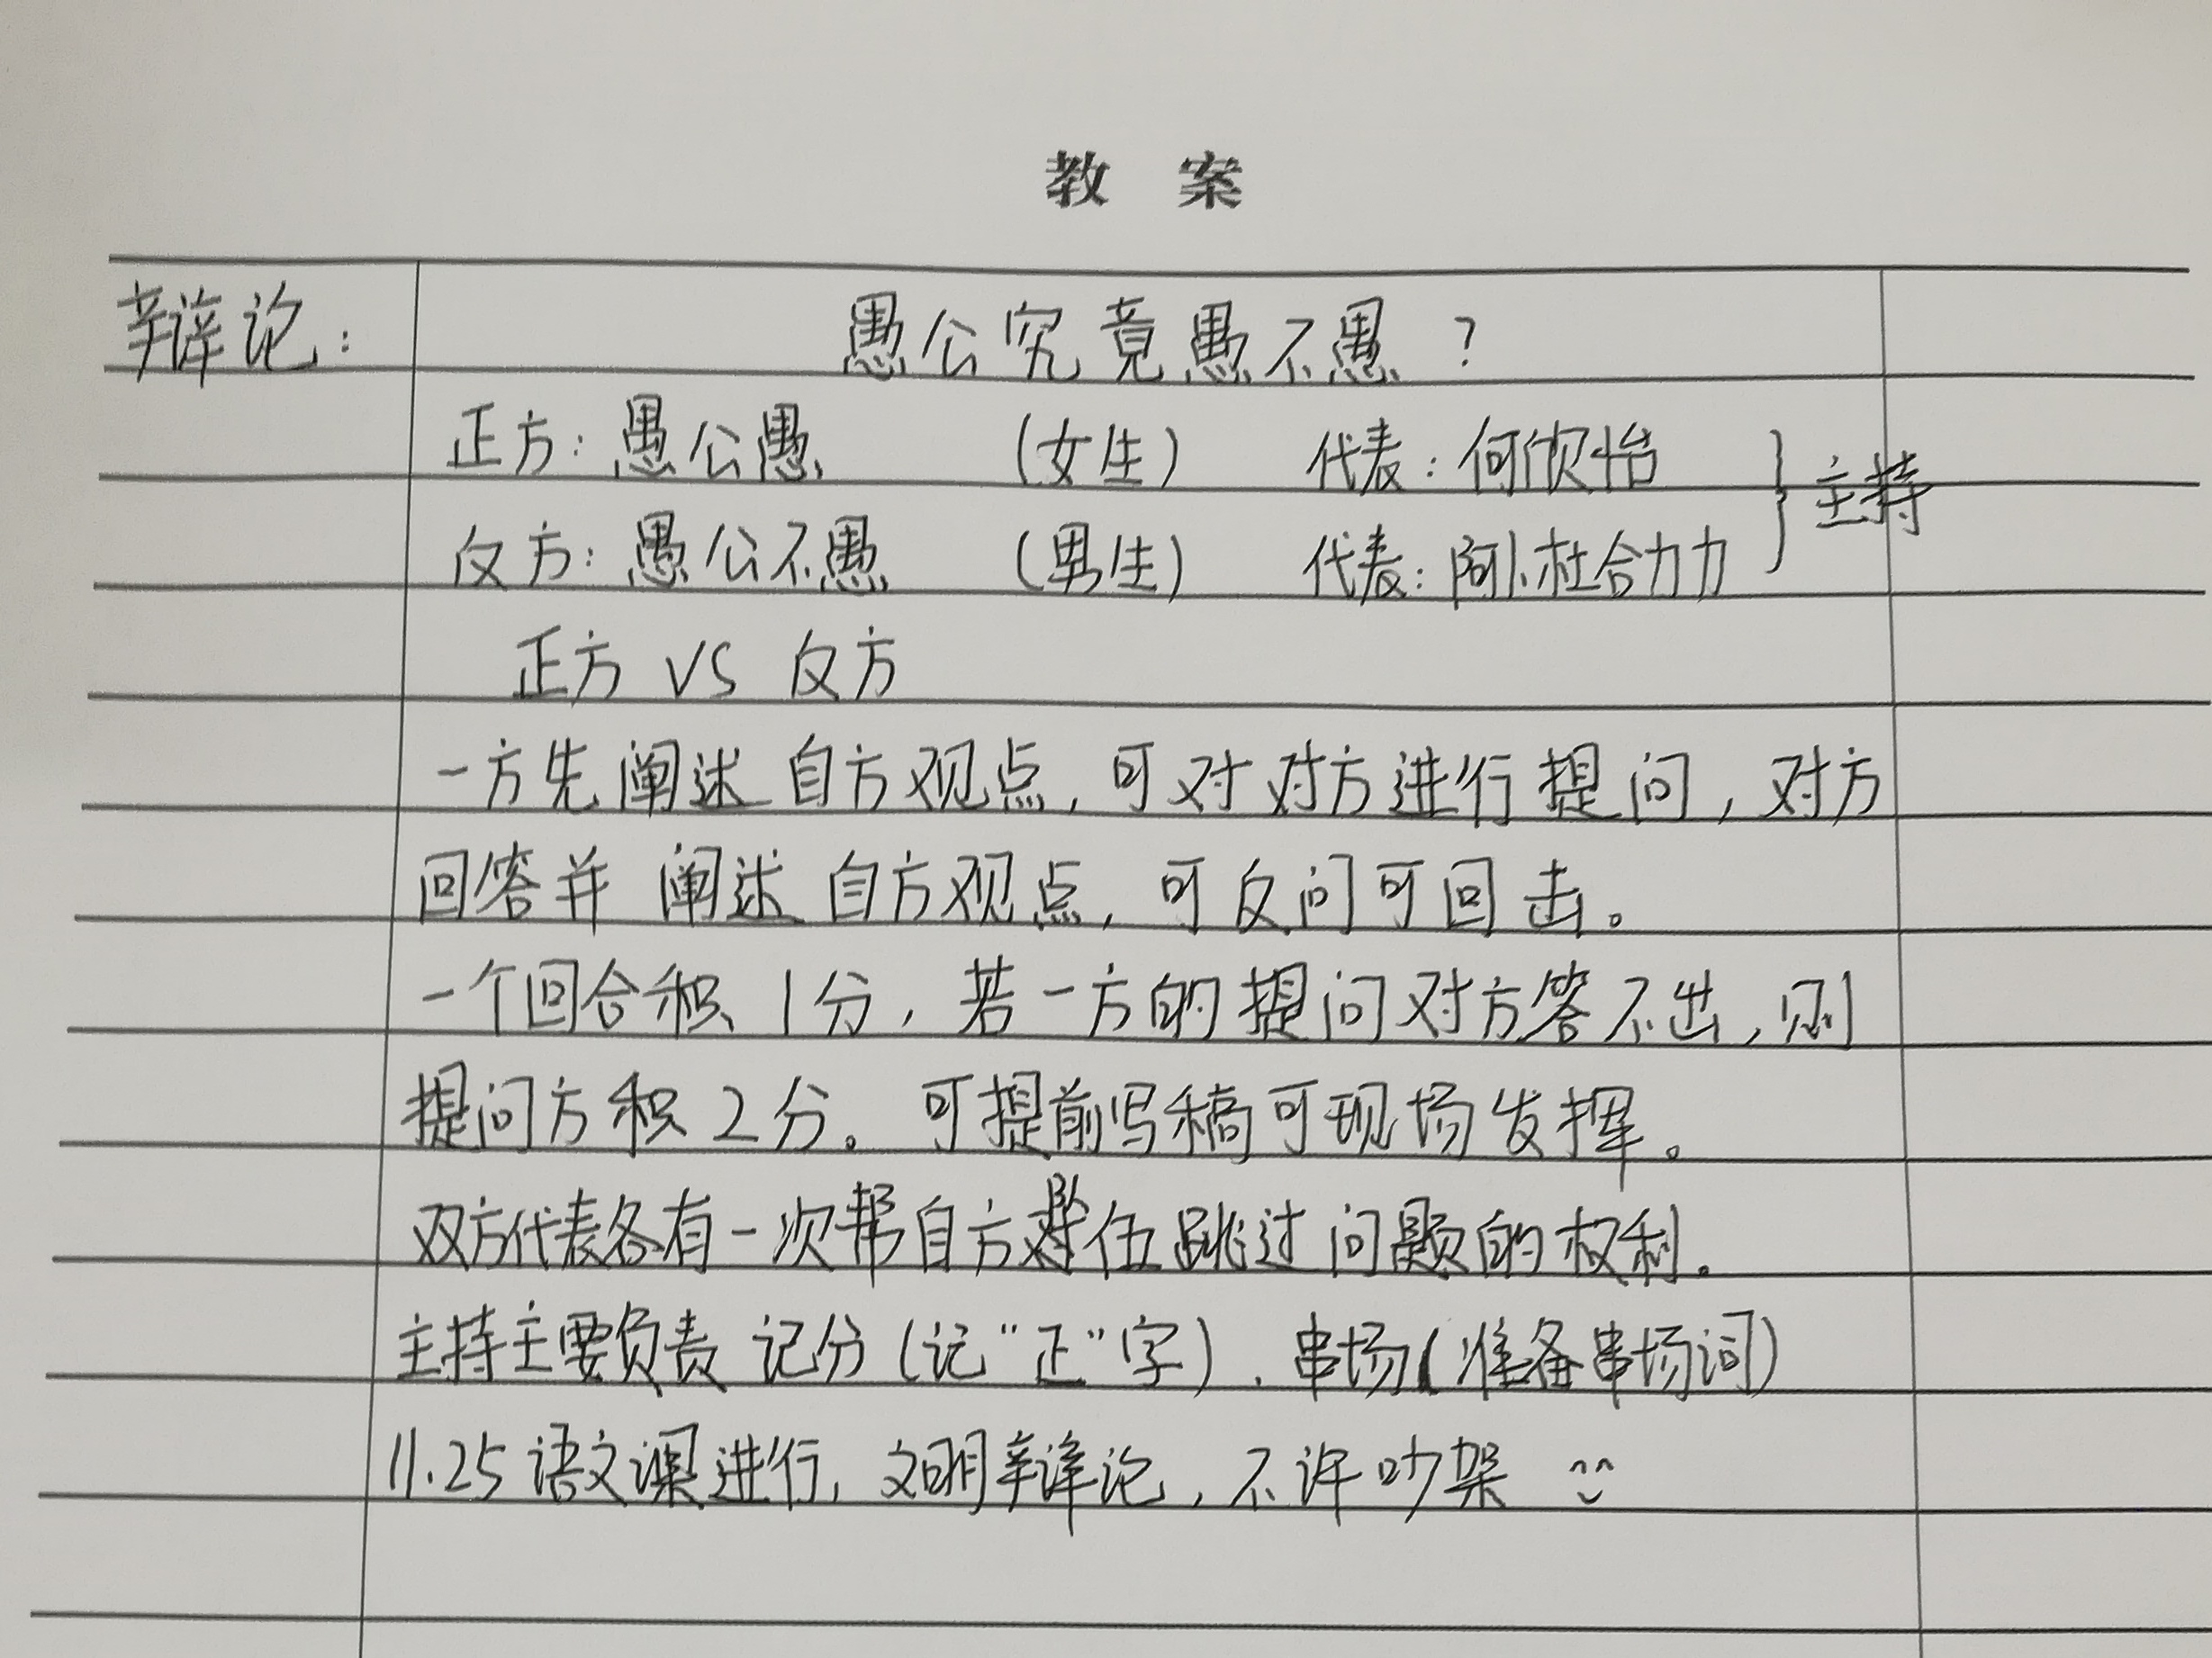 教 案
辩论： 愚公究竟愚不愚？
正方：愚公愚 （女生） 代表：何欣怡
主持
反方：愚公不愚 （男生） 代表：阿卜杜合力力
正方 VS 反方
一方先阐述自方观点，可对对方进行提问，对方
回答并阐述自方观点，可反问可回击。
一个回合积1分，若一方的提问对方答不出，则
提问方积2分。可提前写稿可现场发挥。
双方代表各有一次帮自方队伍跳过问题的权利。
主持主要负责记分（记“正”字）、串场（准备串场词）
11.25语文课进行，文明辩论，不许吵架